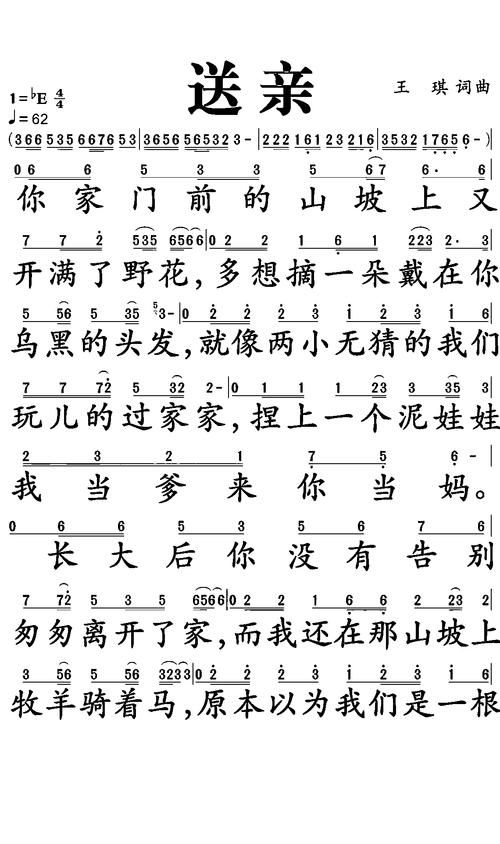 送亲
王 琪 词曲
1=♭E 4/4
♩=62
(366 535 6676 53 | 3656 56532 3 - | 222 161 23 216 | 3532 1765 6 - )
0 6 6 5 3 3 5 6 7 6· 6
你家门前的山坡上又
7 7 2 535 6566 | 0 2 2 1 6 1 223 2· 3
开满了野花,多想摘一朵戴在你
5 56 5 35 3 - | 0 2 2 2 3 3 1 6
乌黑的头发,就像两小无猜的我们
7 7 72 5 32 2 - | 0 1 1 1 23 3 35 3
玩儿的过家家,捏上一个泥娃娃
2 3 2 1 7 5 6 -
我当爹来你当妈。
0 6 6 5 3 5 7 6
长大后你没有告别
7 72 5 3 5 6566 | 0 2 2 1 6 6 2 23 2
匆匆离开了家,而我还在那山坡上
3 56 5 56 3233 | 0 2 2 2 3 3 2 1 6
牧羊骑着马,原本以为我们是一根